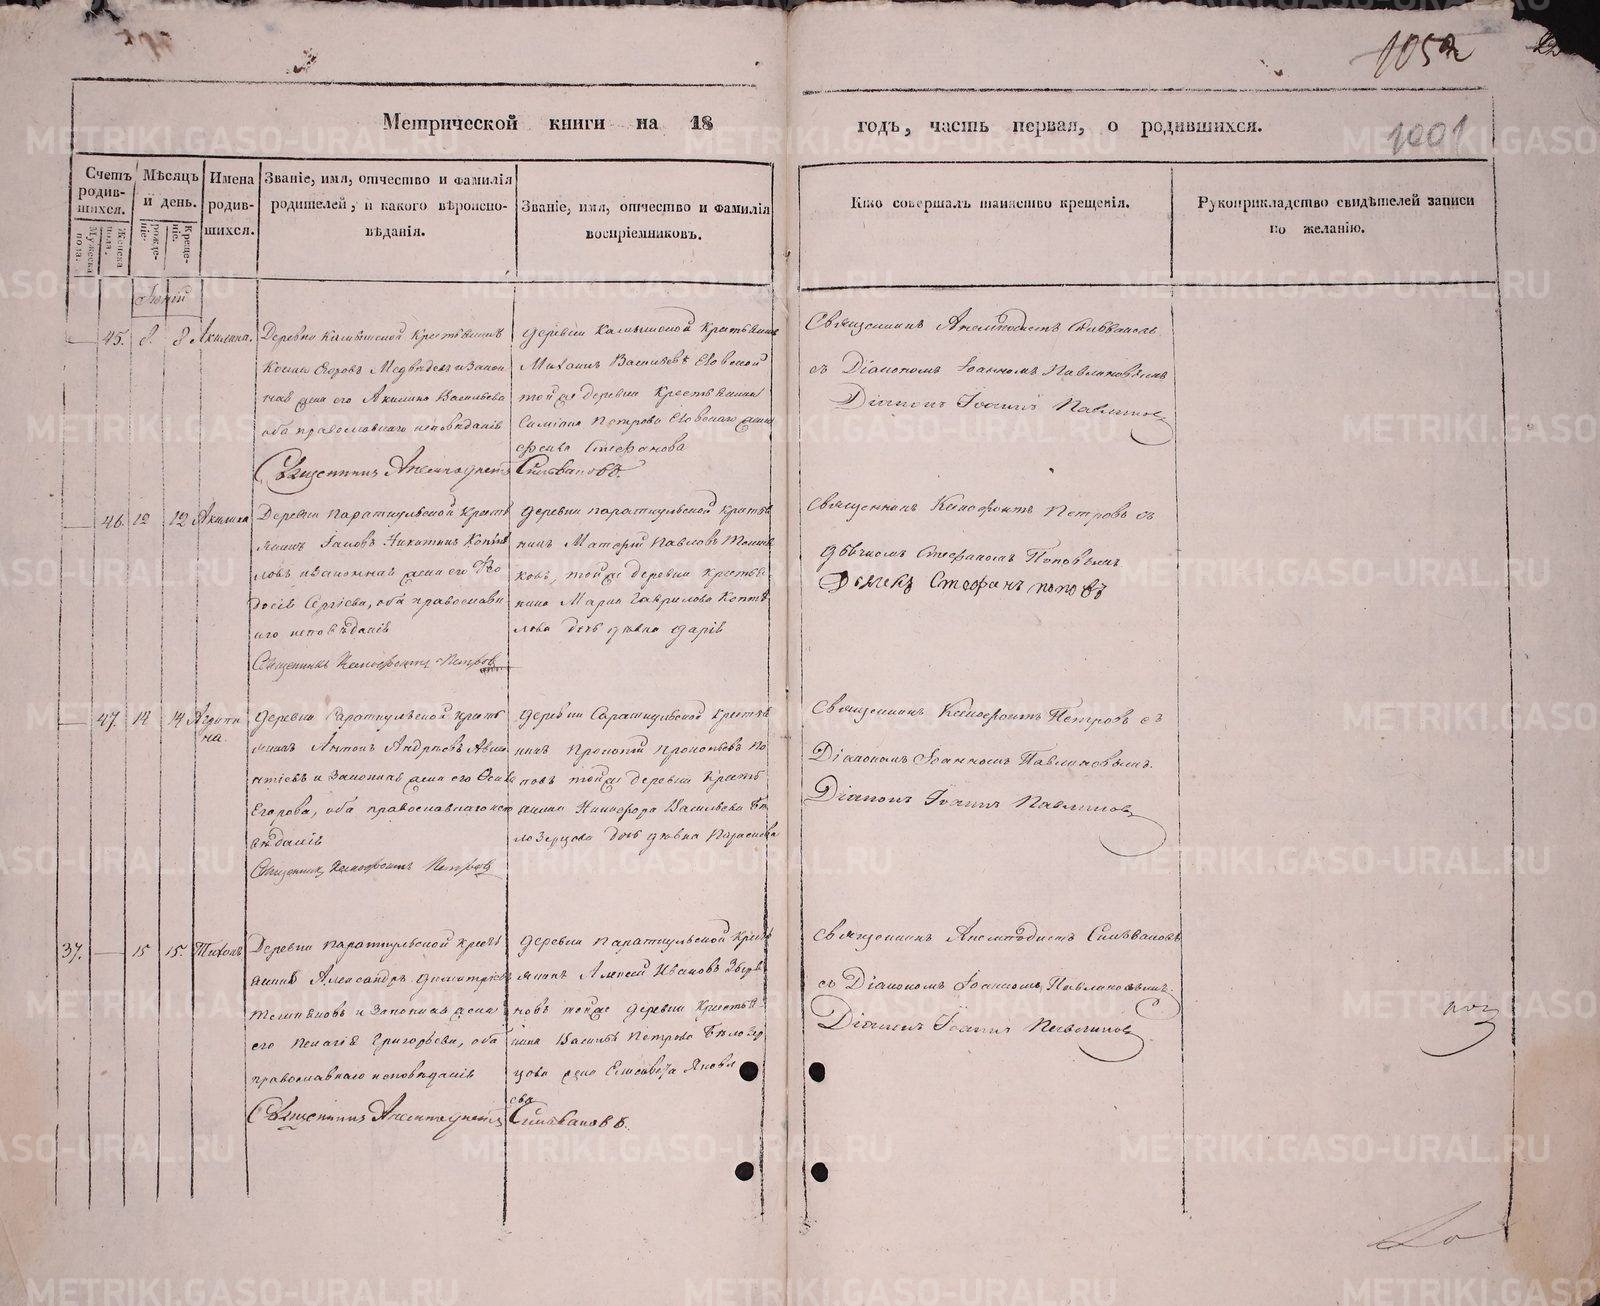 1052
1001
Метрической книги на 18 годъ, часть первая, о родившихся.
Счетъ родив-
шихся.
Мужеска пола.
Женска пола.
Мѣсяцъ и день.
рожде-
ніе.
Креще-
ніе.
Имена родив-
шихся.
Званіе, имя, отчество и фамилія
родителей, и какого вѣроиспо-
вѣданія.
Званіе, имя, отчество и фамилія
воспріемниковъ.
Кто совершалъ таинство крещенія.
Рукоприкладство свидѣтелей записи
по желанію.
Іюній
45. 8. 8 Акилина.
Деревни Крестьянинъ
Косма Егоровъ Медвѣдевъ и Закон
ная жена его Акилина Васильева
оба православнаго исповѣданія
Священникъ Анемподистъ Сильвановъ.
деревни Крестьянинъ
Михаилъ Васильевъ
той же деревни Крестьянина
Петрова жена
Стефанова
Священникъ Анемподистъ
съ Діакономъ Іоанномъ Павлиновымъ
Діаконъ Іоаннъ Павлиновъ
46. 12 12 Акилина
Деревни Параткульской Крестья
нинъ Іаковъ Никитинъ Копты
ловъ и законная жена его Ѳео
досія Сергіева, оба православна
го исповѣданія
Священникъ Ксенофонтъ Петровъ
деревни Параткульской Крестья
нинъ Павловъ
ковъ, той же деревни крестья
нина Гаврилова Копты
лова дочь дѣвка Дарія
Священникъ Ксенофонтъ Петровъ съ
дьячкомъ Стефаномъ Поповымъ
Дьячекъ Стефанъ Поповъ
47. 14 14 Агрипи
на
деревни Крестья
нинъ Антонъ Андреевъ
и Законная жена его
Егорова, оба православнаго испо
вѣданія
Священникъ Ксенофонтъ Петровъ
деревни Крестья
нинъ Прокопій Прокопьевъ По
повъ той же деревни Кресть
янина Никифора Васильева Бѣ
лозерцова дочь дѣвка Параскева
Священникъ Ксенофонтъ Петровъ съ
Діакономъ Іоанномъ Павлиновымъ.
Діаконъ Іоаннъ Павлиновъ
37. 15 15. Тихонъ
Деревни Параткульской Кресть
янинъ Александръ Димитріевъ
и Законная жена
его Пелагія Григорьева, оба
православнаго исповѣданія
Священникъ Анемподистъ Сильвановъ.
деревни Параткульской Кресть
янинъ Алексій Ивановъ Звѣре
новъ той же деревни Крестья
нина Василья Петрова Бѣлозер
цова жена Елисавета Яковл
ева
Священникъ Анемподистъ Сильвановъ
съ Діакономъ Іоанномъ Павлиновымъ.
Діаконъ Іоаннъ Павлиновъ
METRIKI.GASO-URAL.RU